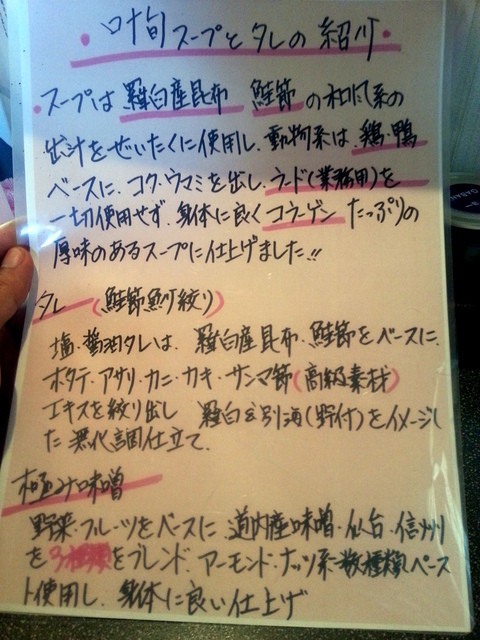 叶旬スープとタレの紹介
・スープは羅臼産昆布 鮭節の和風系の
出汁をぜいたくに使用し、動物系は、鶏・鴨
ベースに、コク・ウマミを出し、ラード(業務用)を
一切使用せず、身体に良くコラーゲンたっぷりの
厚味のあるスープに仕上げました!!
タレ(鮭節魚介絞り)
塩・醤油タレは、羅臼産昆布・鮭節をベースに、
ホタテ・アサリ・カニ・カキ・サンマ節(高級素材)
エキスを絞り出し 羅臼と別海(野付)をイメージし
た無化調仕立て、
極み味噌
野菜・フルーツをベースに 道内産味噌・仙台・信州
を3種類をブレンド、アーモンド・ナッツ系数種類ペース
ト使用し、身体に良い仕上げ